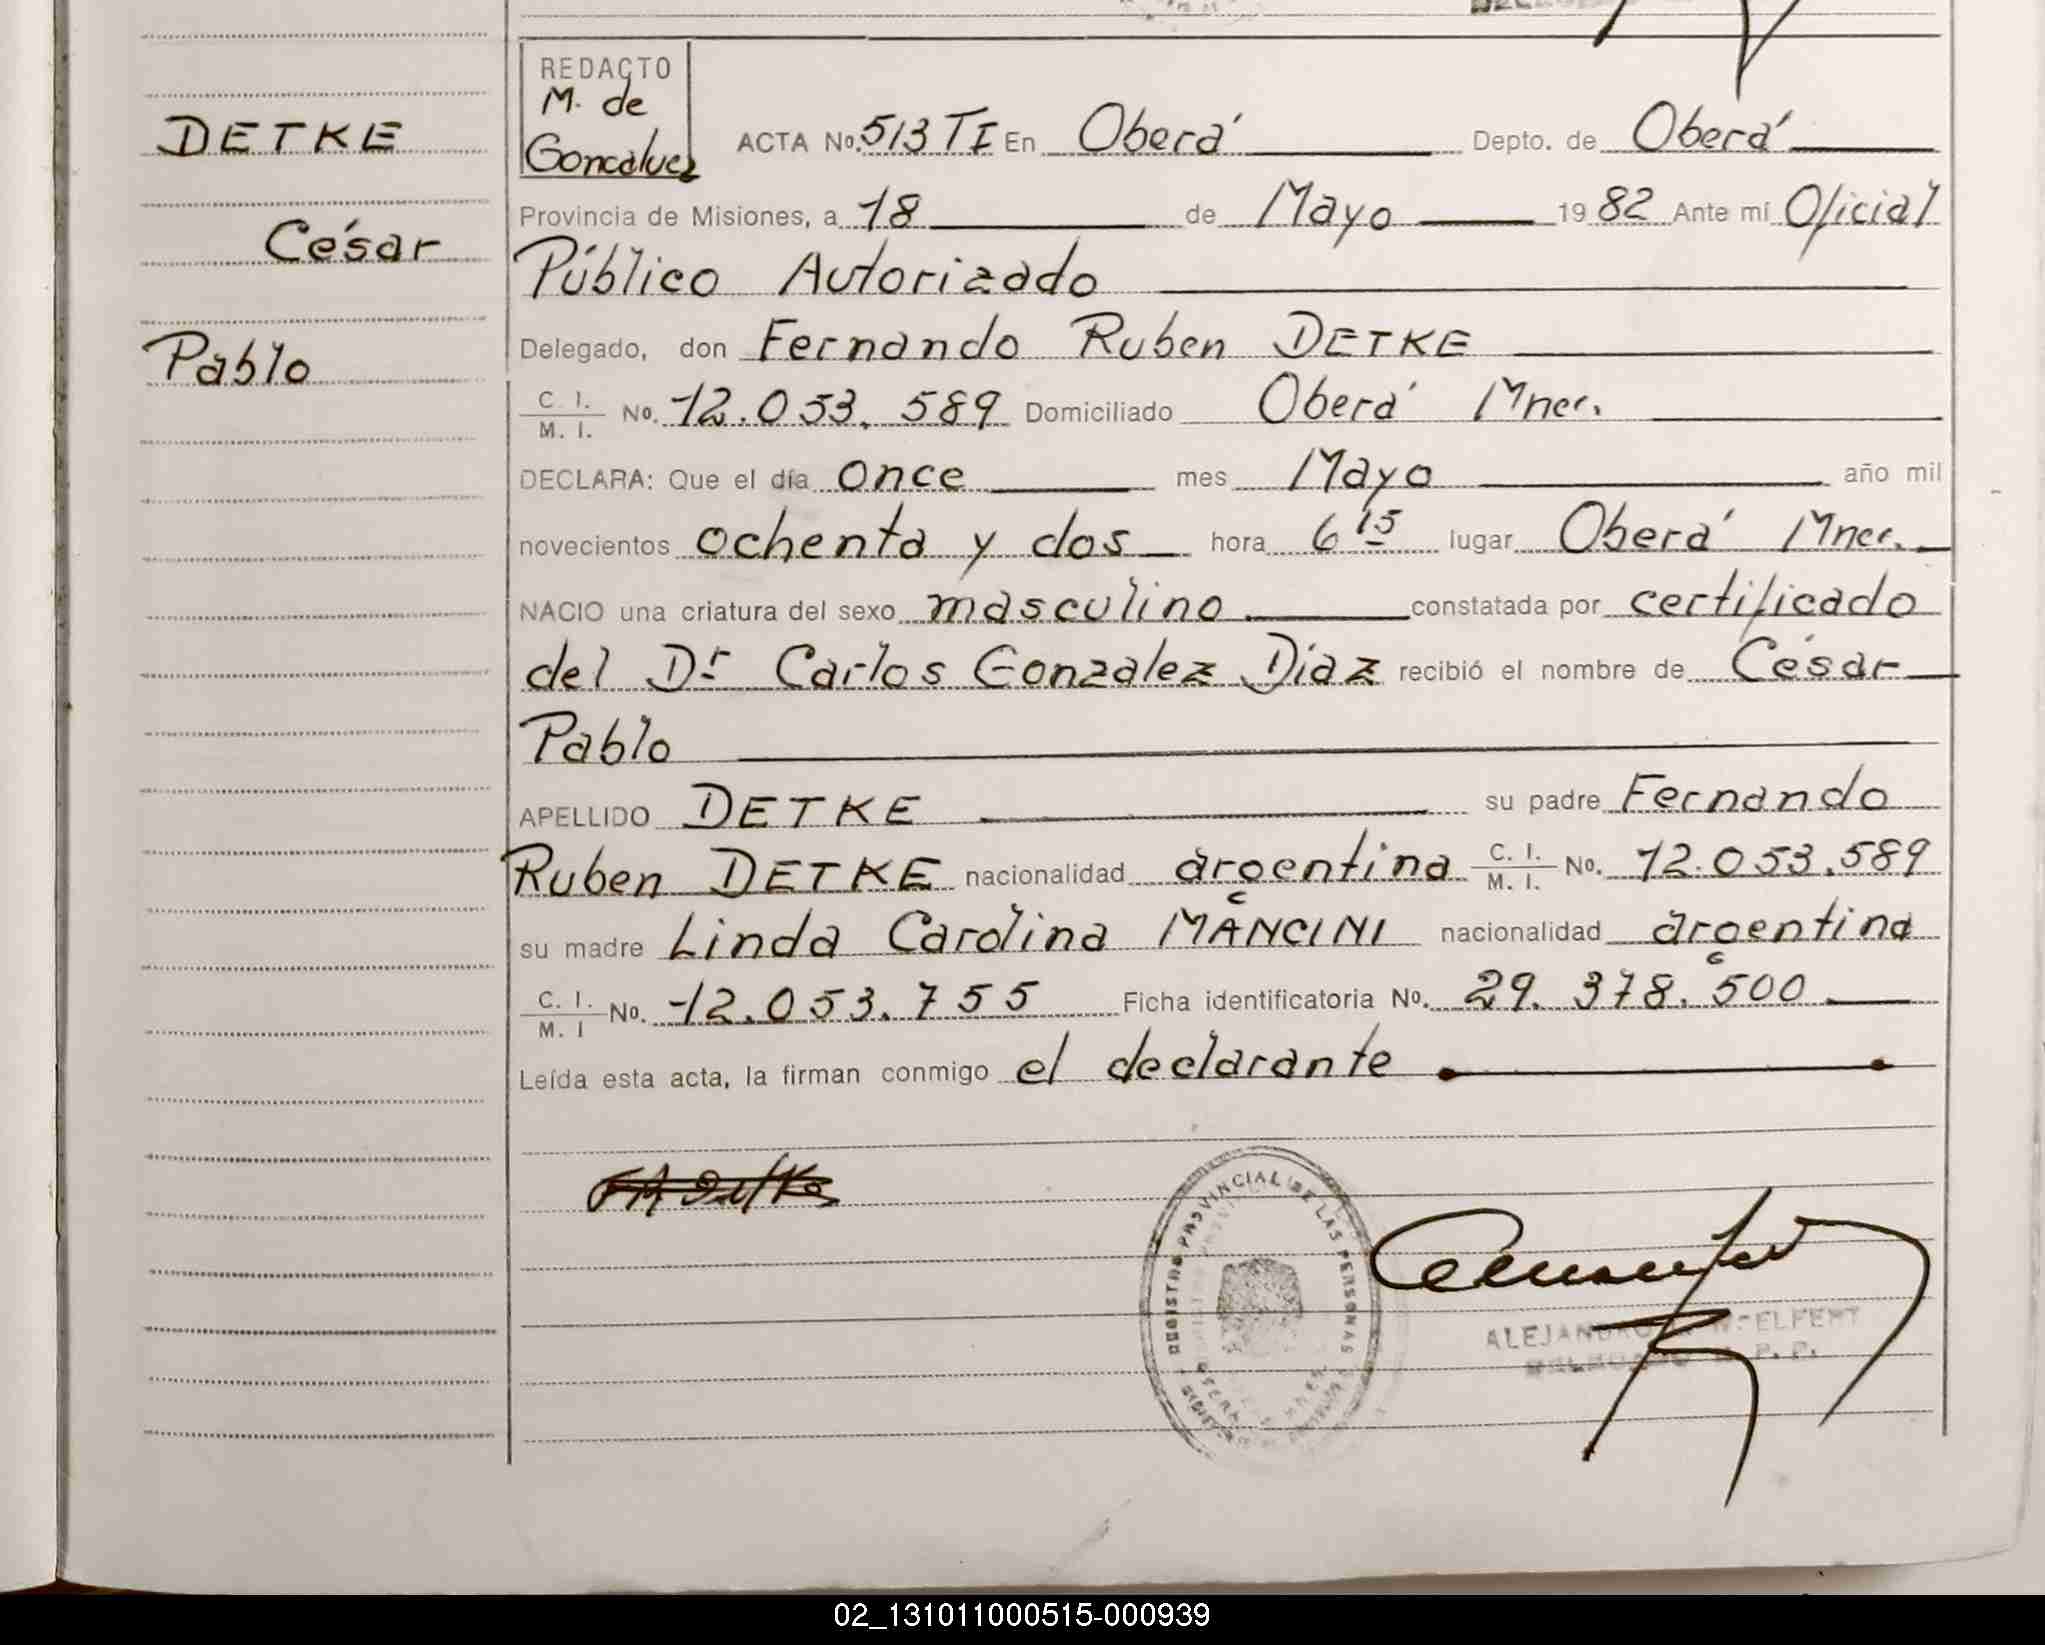 DETKE
César
Pablo
REDACTO
M. de
Goncalvez
ACTA No. 513 TI En Oberá Depto. de Oberá
Provincia de Misiones, a 18 de Mayo 1982 Ante mí Oficial
Público Autorizado
Delegado, don Fernando Ruben DETKE
C. I. / M. I. No. 12.053.589 Domiciliado Oberá Mnes.
DECLARA: Que el día once mes Mayo año mil
novecientos ochenta y dos hora 6 15 lugar Oberá Mnes.
NACIO una criatura del sexo masculino constatada por certificado
del Dr Carlos Gonzalez Díaz recibió el nombre de César
Pablo
APELLIDO DETKE su padre Fernando
Ruben DETKE nacionalidad argentina C. I. / M. I. No. 12.053.589
su madre Linda Carolina MANCINI nacionalidad argentina
C. I. / M. I No. 12.053.755 Ficha identificatoria No. 29.378.500
Leída esta acta, la firman conmigo el declarante
REGISTRO PROVINCIAL DE LAS PERSONAS
02_131011000515-000939